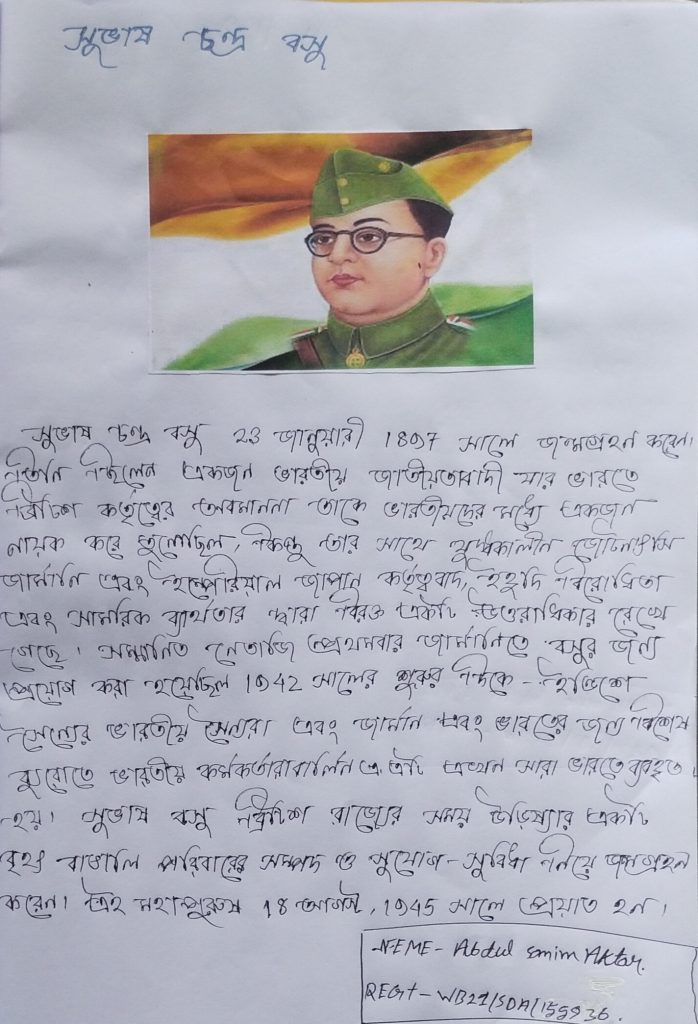 সুভাষ চন্দ্র বসু
সুভাষ চন্দ্র বসু 23 জানুয়ারী 1897 সালে জন্মগ্রহন করেন।
তিনি ছিলেন একজন ভারতীয় জাতীয়তাবাদী যার ভারতে
ব্রিটিশ কর্তৃত্বের অবমাননা তাকে ভারতীয়দের মধ্যে একজন
নায়ক করে তুলেছিল, কিন্তু তার সাথে যুদ্ধকালীন
জার্মানি এবং ইম্পেরিয়াল জাপান কর্তৃত্ববাদ, ইহুদি বিরোধিতা
এবং সামরিক ব্যর্থতার দ্বারা একটি উত্তরাধিকার রেখে
গেছে। সম্মানিত নেতাজি প্রথমবার জার্মানিতে বসুর জন্য
প্রয়োগ করা হয়েছিল 1942 সালের শুরুর দিকে -
ভারতীয় সৈন্যরা এবং জার্মান এবং ভারতের জন্য বিশেষ
ব্যুরোতে ভারতীয় এটি এখন সারা ভারতে ব্যবহৃত
হয়। সুভাষ বসু ব্রিটিশ রাজ্যের সময় উড়িষ্যার একটি
বৃহৎ বাঙালি পরিবারের সম্পদ ও সুযোগ-সুবিধা নিয়ে জন্মগ্রহন
করেন। এই মহাপুরুষ 18 আগস্ট, 1945 সালে প্রয়াত হন।
NEME- Abdul Smim Aktar.
REGt- WB21/SDA/155936.